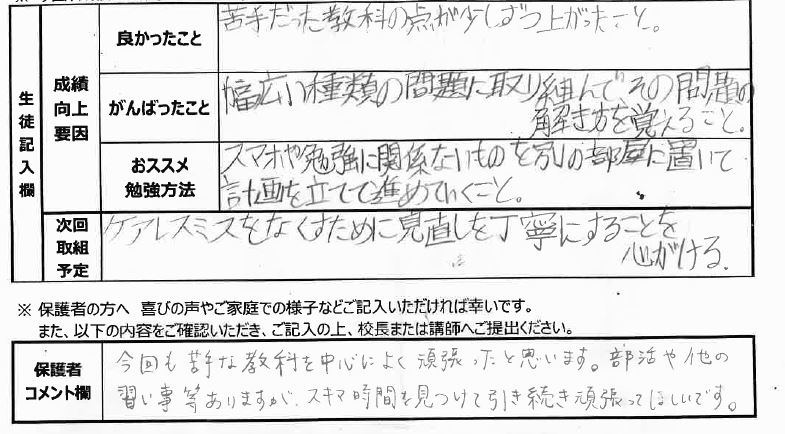 生徒記入欄
成績向上要因
良かったこと
苦手だった教科の点が少しずつ上がったこと。
がんばったこと
幅広い種類の問題に取り組んでその問題の
解き方を覚えること。
おススメ
勉強方法
スマホや勉強に関係ないものを別の部屋に置いて
計画を立てて進めていくこと。
次回
取組
予定
ケアレスミスをなくすために見直しを丁寧にすることを
心がける。
※ 保護者の方へ 喜びの声やご家庭での様子などご記入いただければ幸いです。
また、以下の内容をご確認いただき、ご記入の上、校長または講師へご提出ください。
保護者
コメント欄
今回も苦手な教科を中心によく頑張ったと思います。部活や他の
習い事等ありますが、スキマ時間を見つけて引き続き頑張ってほしいです。